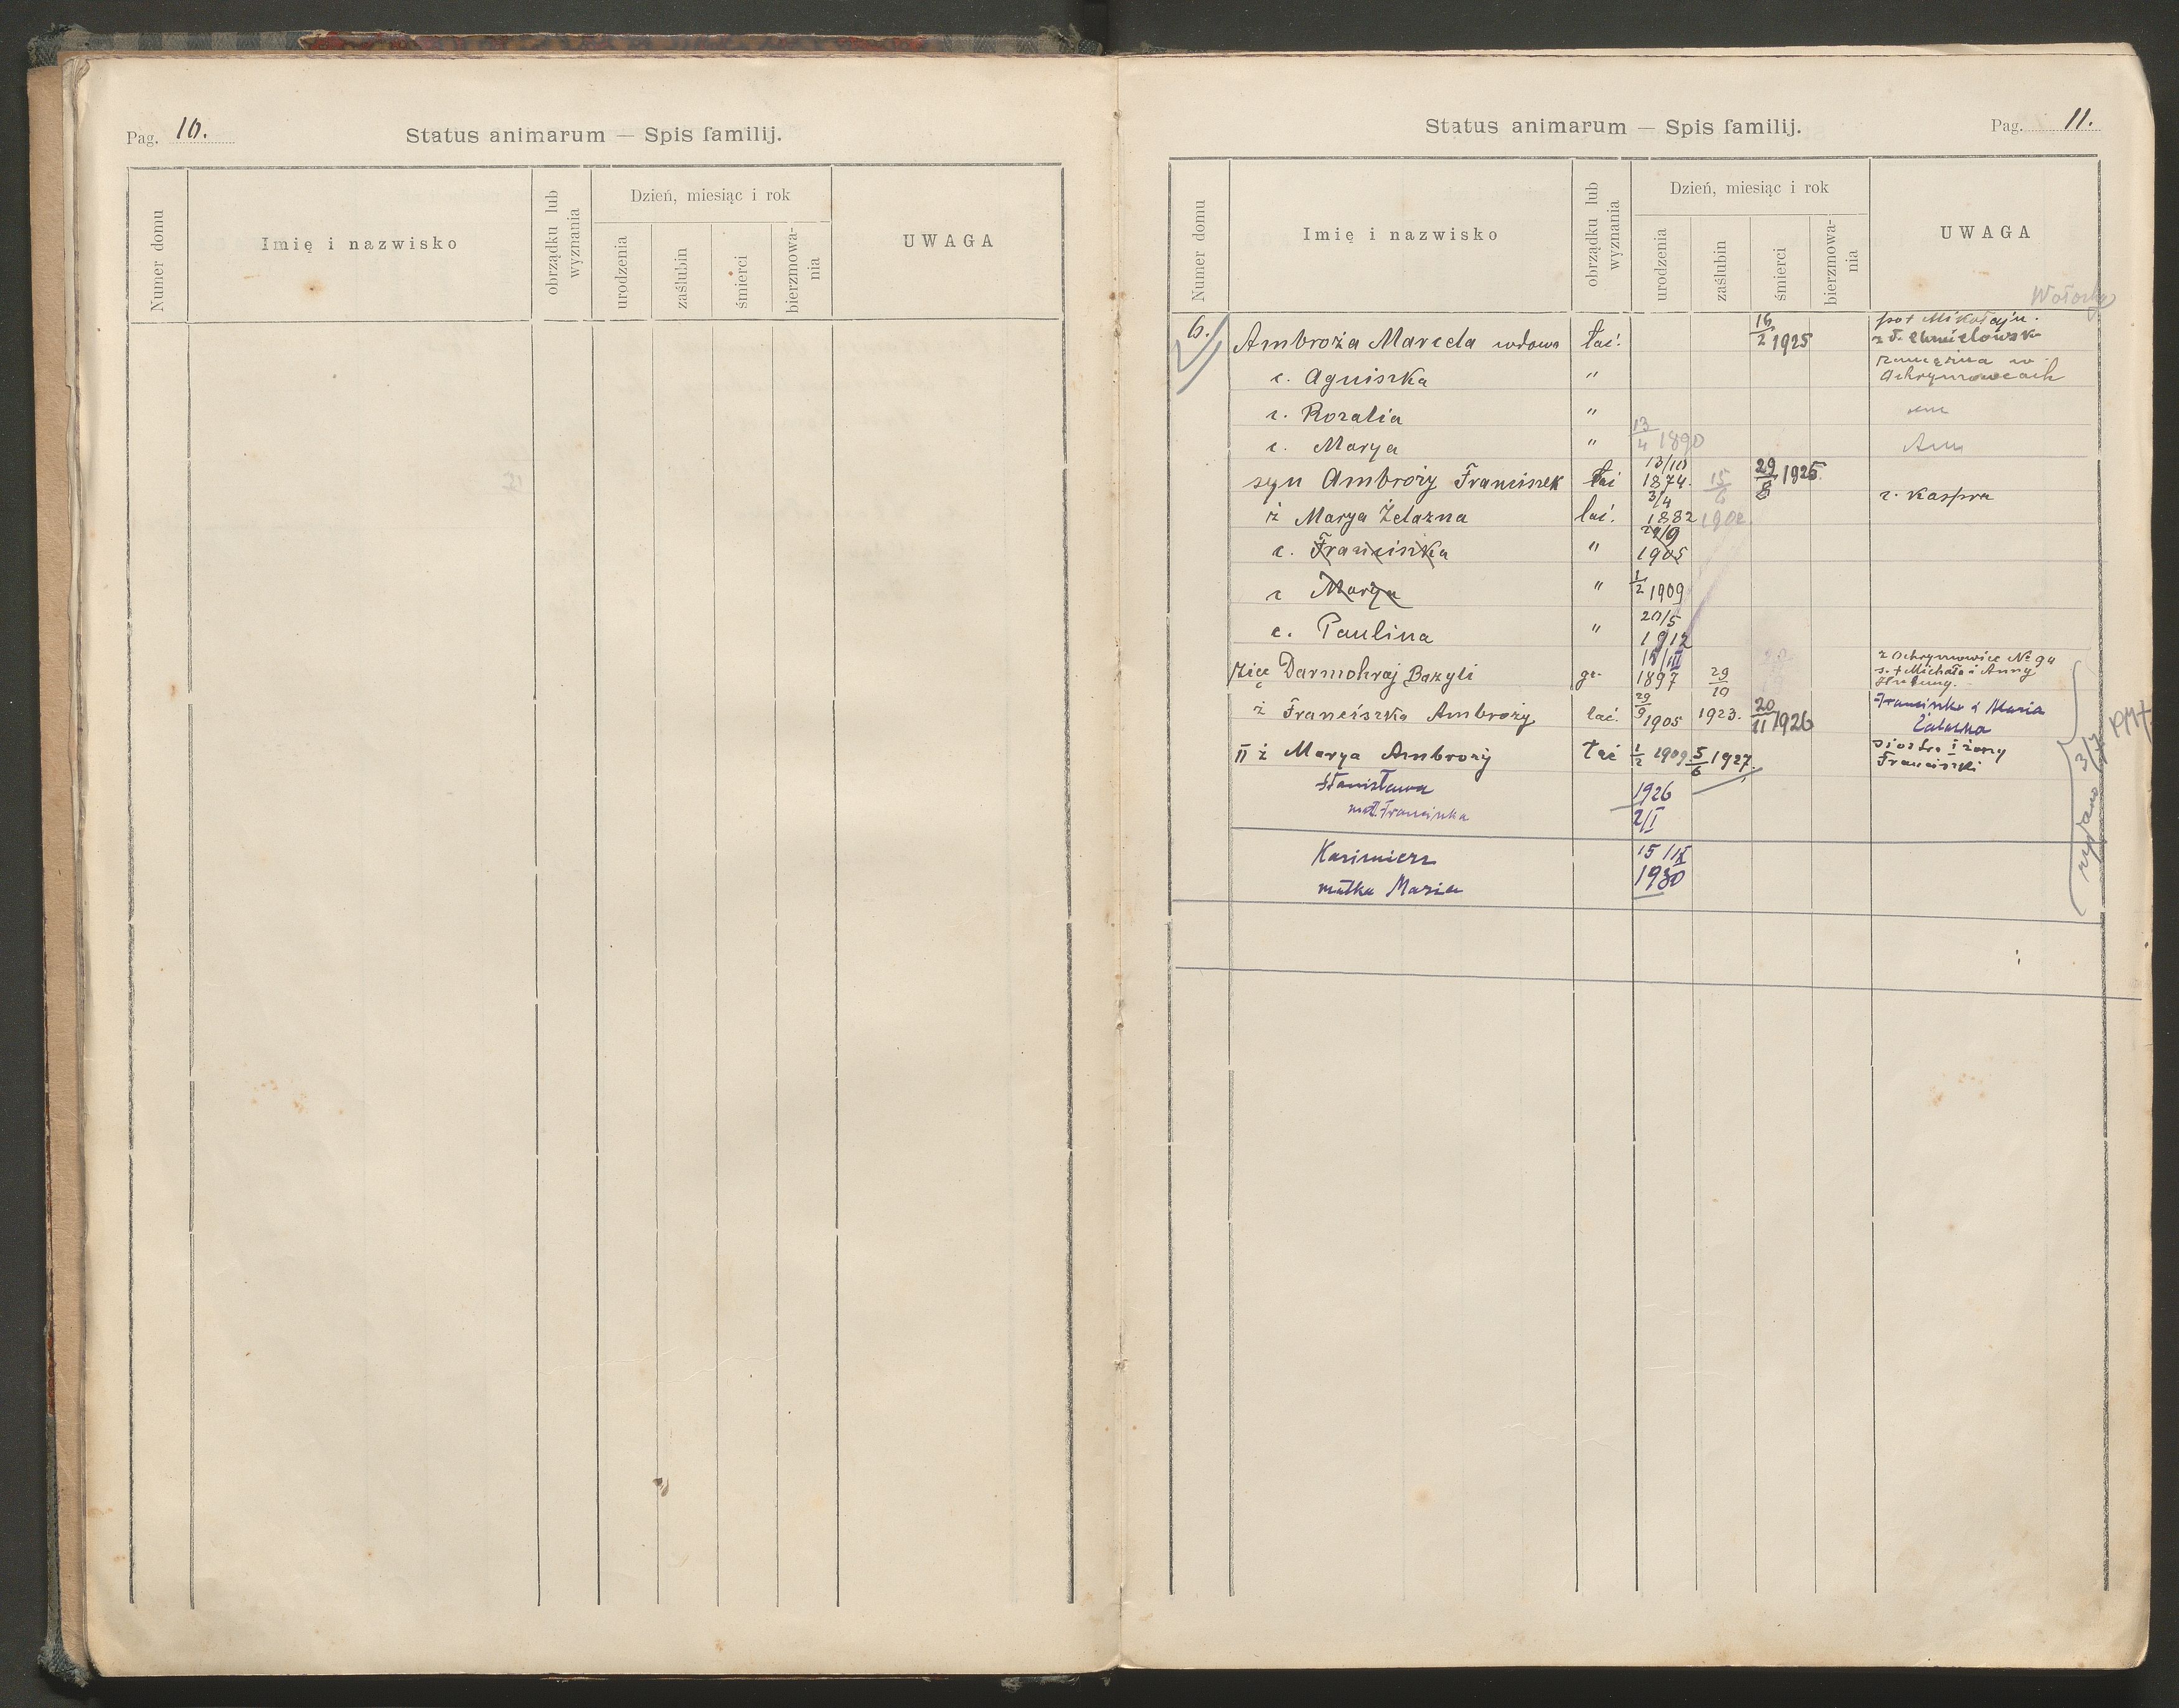 Pag. 10.
Status animarum — Spis familij.
Numer domu
Imię i nazwisko
obrządku lub wyznania
Dzień, miesiąc i rok
urodzenia
zaślubin
śmierci
bierzmowa-
nia
UWAGA
Status animarum — Spis familij.
Pag. 11.
Numer domu
Imię i nazwisko
obrządku lub wyznania
Dzień, miesiąc i rok
urodzenia
zaślubin
śmierci
bierzmowa-
nia
UWAGA
6. Ambroża Marcela wdowa łać. 16/2 1925 po + Mikołaju.
c. Agniszka " zamężna w Ochrymowcach
c. Rozalia "
c. Marya " 13/4 1890
syn Ambroży Franciszek łać 13/10 1874. 15/6 29/8 1925.
ż Marya Żelazna łać. 3/4 1882 190 c. Kaspra
c. Franciszka " 29/9 1905
c Marya " 1/2 1909
c. Paulina " 20/5 1912
Zięć Darmohraj Bazyli gr. 1897 29/10 z Ochrymowiec № 94
s. + Michała i Anny
ż Franciszka Ambroży łać. 29/9 1905 1923. 20/11 1926 Franciszka i Maria
Żelazna
II ż Marya Ambroży łać 1/2 1909. 5/6 1927. siostra I żony
Franciszki
Stanisława 1926
mat. Franciszka 2/I
Kazimierz 15/IX
matka Maria 1930